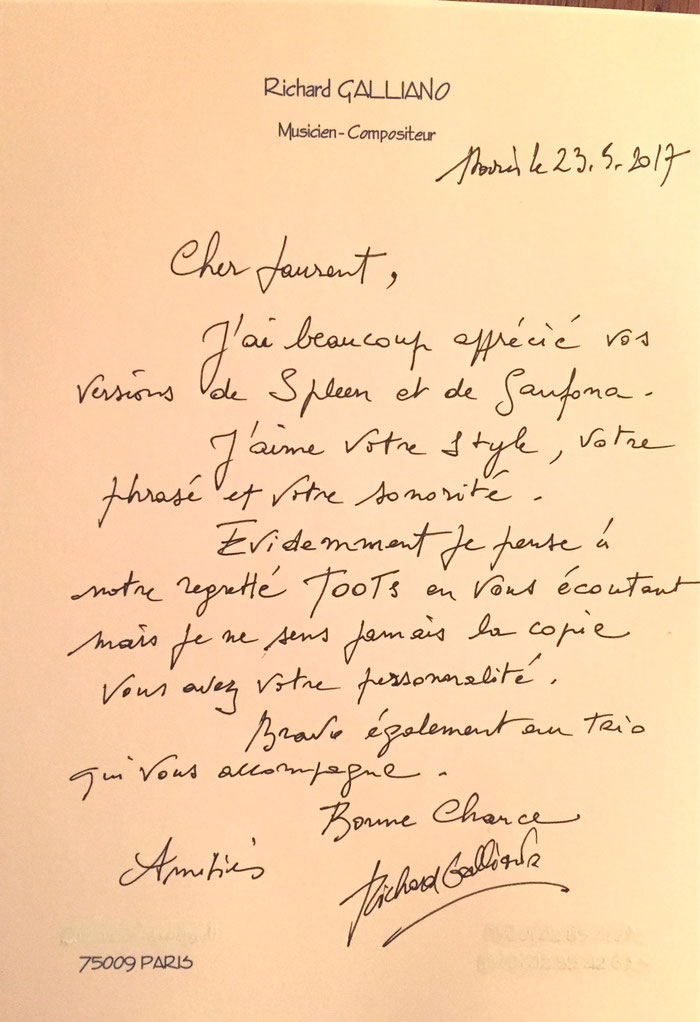 Richard GALLIANO
Musicien-Compositeur
Paris le 23.5.2017
Cher Laurent,
J'ai beaucoup apprécié vos
versions de Spleen et de Sanfona.
J'aime votre style, votre
phrasé et votre sonorité.
Evidemment je pense à
notre regretté TOOTS en vous écoutant
mais je ne sens jamais la copie
vous avez votre personnalité.
Bravo également au trio
qui vous accompagne.
Bonne Chance
Amitiés
Richard Galliano
75009 PARIS